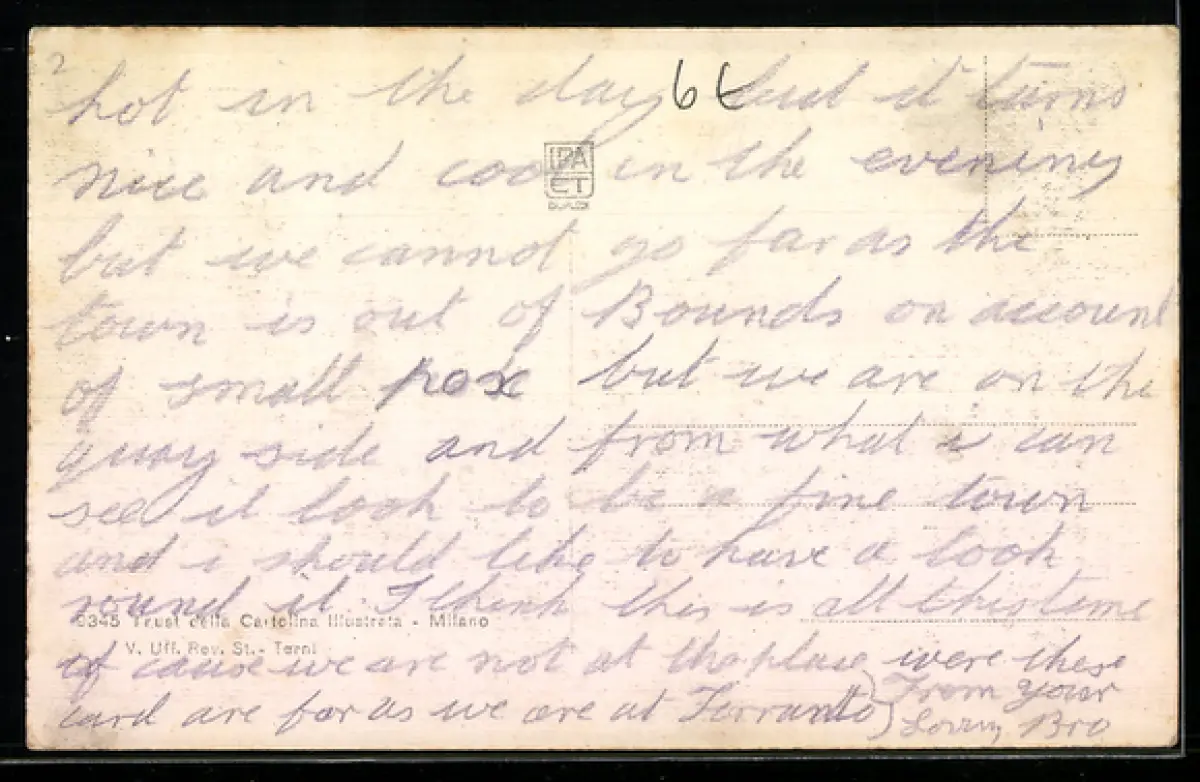 2
hot in the day but it turns
6t
nice and cool in the evening
IPA
CT
but we cannot go far as the
town is out of Bounds on account
of small pox but we are on the
quay side and from what i can
see it look to be a fine town
and i should like to have a look
round it. I think this is all this time
9345 Trust della Cartolina Illustrata - Milano
V. Uff. Rev. St. - Terni
of cause we are not at the place were these
card are for as we are at Terranto
From your
Loving Bro